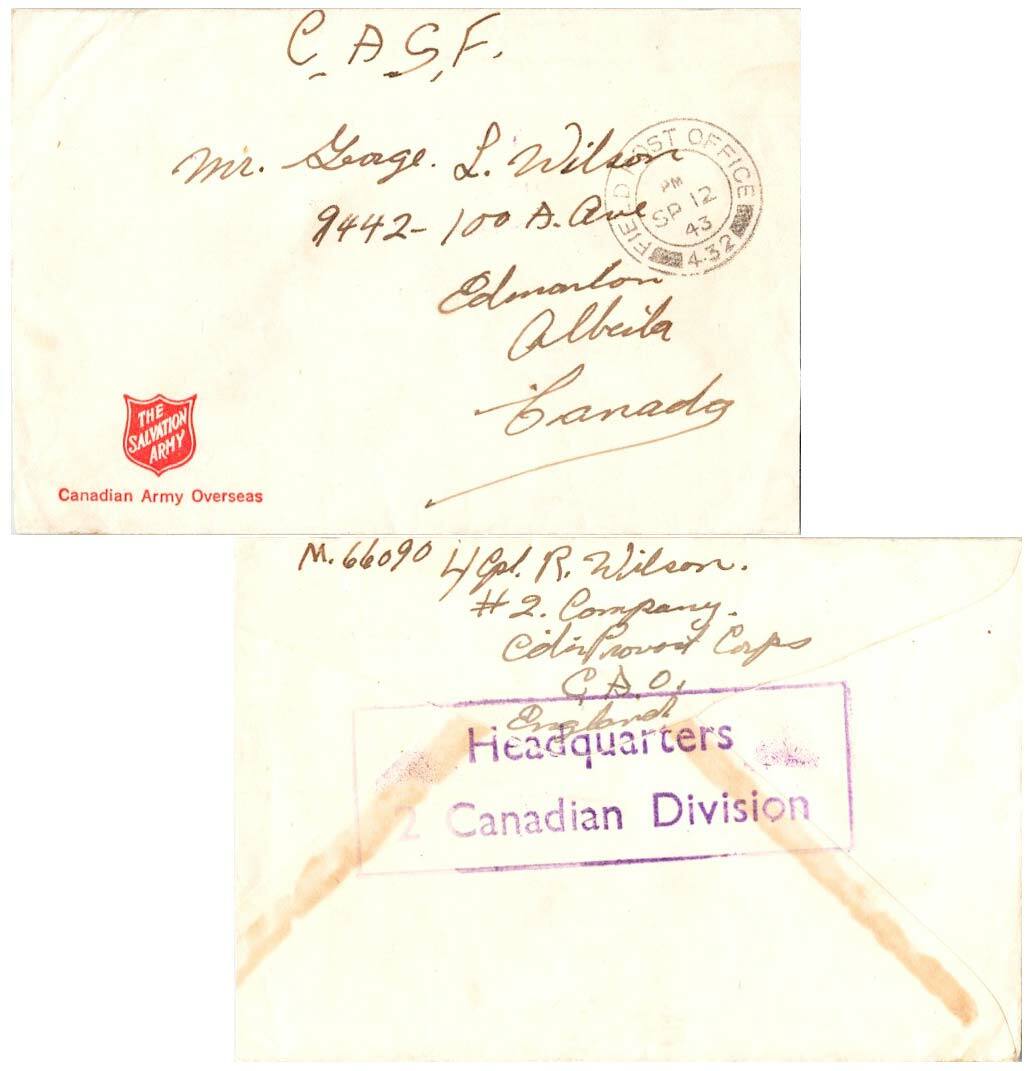 C.A.S.F.
Mr. George. L. Wilson
9442-100 A. Ave
Edmonton
Alberta
Canada
FIELD POST OFFICE
PM
SP 12
43
432
THE
SALVATION
ARMY
Canadian Army Overseas
M. 66090 L/Cpl. R. Wilson.
#2. Company.
Cdn Provost Corps
C.A.O.
England
Headquarters
2 Canadian Division